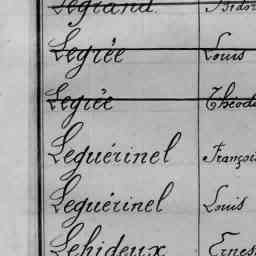 Legrand
Legrée Louis
Legrée Théod
Leguérinel Françoi
Leguérinel Louis
Lehideux Ernes